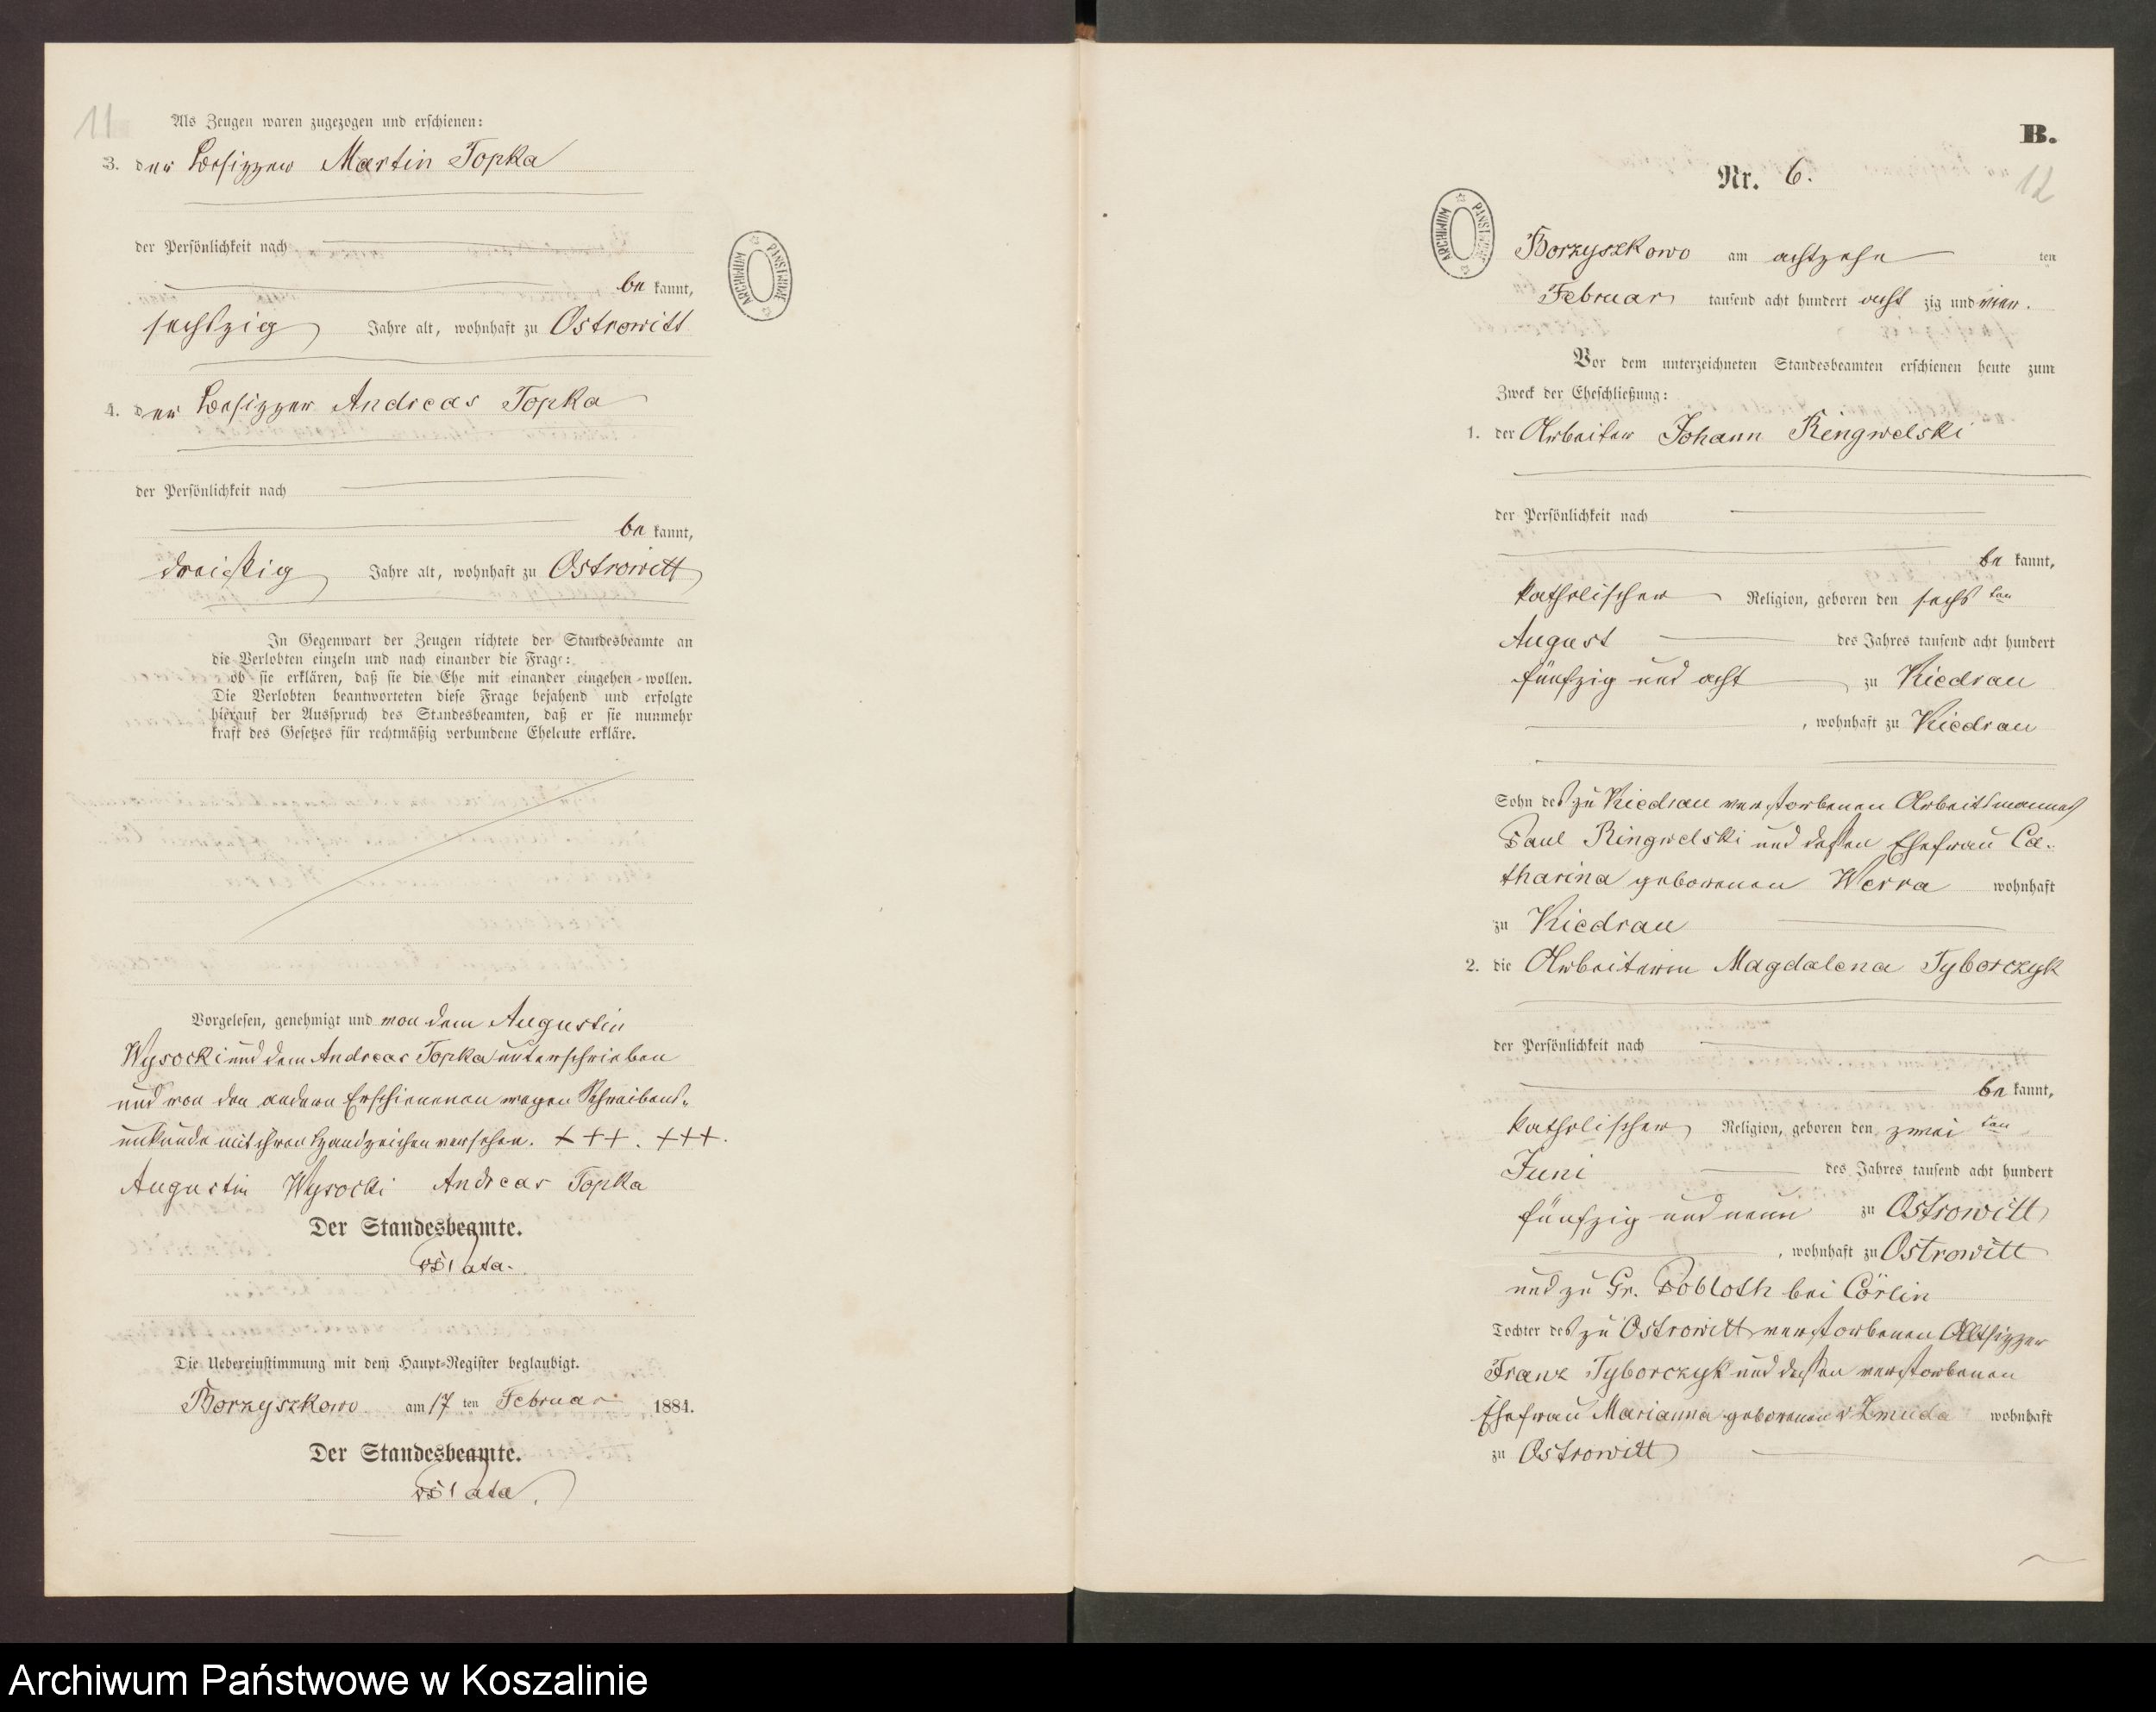 11
Als Zeugen waren zugezogen und erschienen:
3. der Besitzer Martin Topka
der Persönlichkeit nach
be kannt,
sechszig Jahre alt, wohnhaft zu Ostrowitt
4. der Besitzer Andreas Topka
der Persönlichkeit nach
be kannt,
dreißig Jahre alt, wohnhaft zu Ostrowitt
In Gegenwart der Zeugen richtete der Standesbeamte an
die Verlobten einzeln und nach einander die Frage:
ob sie erklären, daß sie die Ehe mit einander eingehen wollen.
Die Verlobten beantworteten diese Frage bejahend und erfolgte
hierauf der Ausspruch des Standesbeamten, daß er sie nunmehr
kraft des Gesetzes für rechtmäßig verbundene Eheleute erkläre.
Vorgelesen, genehmigt und von dem Augustin
Wysocki und dem Andreas Topka unterschrieben
und von den andern Erschienenen wegen Schreibens-
unkunde mit ihren Handzeichen versehen. +++. +++.
Augustin Wysocki Andreas Topka
Der Standesbeamte.
Die Uebereinstimmung mit dem Haupt-Register beglaubigt.
Borzyszkowo am 17 ten Februar 1884.
Der Standesbeamte.
ARCHIWUM PAŃSTWOWE
B.
Nr. 6.
12
ARCHIWUM PAŃSTWOWE
Borzyszkowo am achtzehn ten
Februar tausend acht hundert acht zig und vier.
Vor dem unterzeichneten Standesbeamten erschienen heute zum
Zweck der Eheschließung:
1. der Arbeiter Johann Ringwelski
der Persönlichkeit nach
be kannt,
katholischer Religion, geboren den sechs ten
August des Jahres tausend acht hundert
fünfzig und acht zu Kiedrau
, wohnhaft zu Kiedrau
Sohn des zu Kiedrau verstorbenen Arbeitsmannes
Paul Ringwelski und dessen Ehefrau Ca-
tharina geborenen Werra wohnhaft
zu Kiedrau
2. die Arbeiterin Magdalena Tyborczyk
der Persönlichkeit nach
be kannt,
katholischer Religion, geboren den zwei ten
Juni des Jahres tausend acht hundert
fünfzig und neun zu Ostrowitt
, wohnhaft zu Ostrowitt
und zu Gr. Pobloth bei Cörlin
Tochter des zu Ostrowitt verstorbenen Altsitzer
Franz Tyborczyk und dessen verstorbenen
Ehefrau Marianna geborenen v Zmuda wohnhaft
zu Ostrowitt
Archiwum Państwowe w Koszalinie